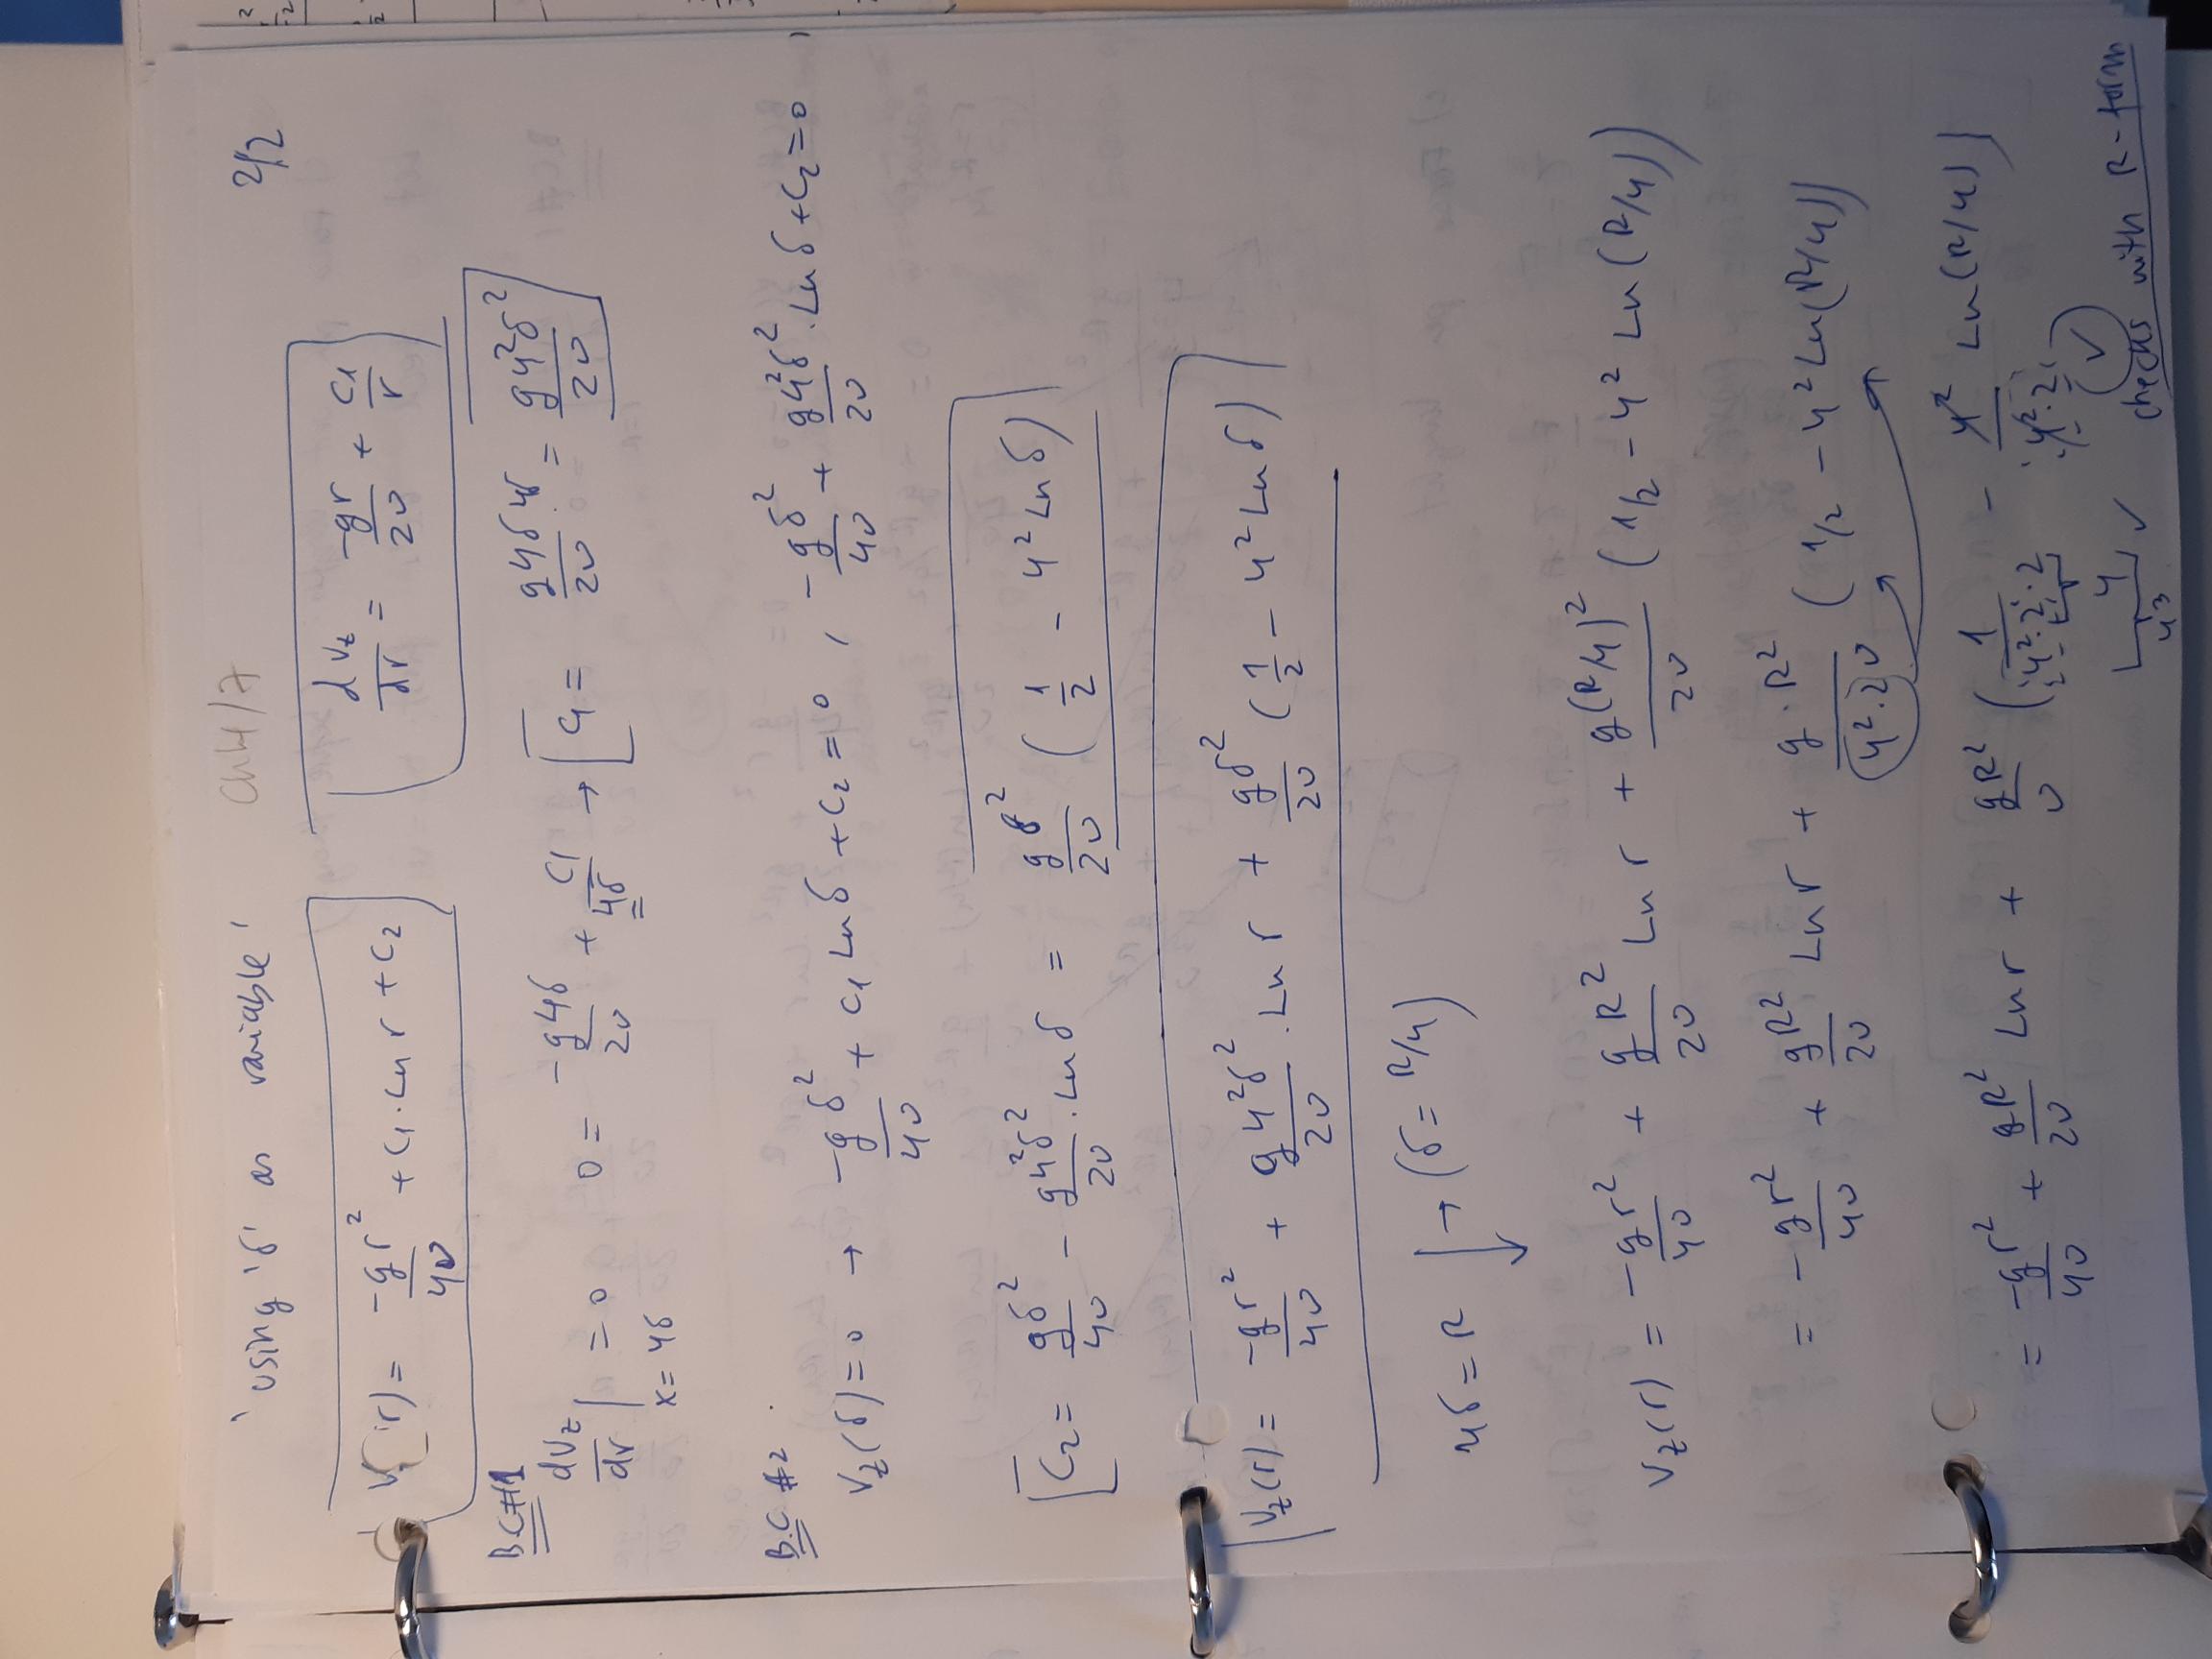 'using 'δ' as variable' Ch4/7 2/2
V (r) = -gr²/4υ + C1·Ln r + C2
dVz/dr = -gr/2υ + C1/r
B.C#1
dVz/dr | x=4δ = 0 0 = -g4δ/2υ + C1/4δ → C1 = g4δ·4δ/2υ = g4²δ²/2υ
B.C #2
Vz(δ)=0 → -gδ²/4υ + C1 Ln δ + C2 = 0 , -gδ²/4υ + g4²δ²/2υ ·Ln δ + C2 = 0 ,
C2 = gδ²/4υ - g4²δ²/2υ ·Ln δ = gδ²/2υ (1/2 - 4² Ln δ)
Vz(r) = -gr²/4υ + g4²δ²/2υ ·Ln r + gδ²/2υ (1/2 - 4² Ln δ)
4δ = R → (δ = R/4)
Vz(r) = -gr²/4υ + gR²/2υ Ln r + g(R/4)²/2υ (1/2 - 4² Ln (R/4))
= -gr²/4υ + gR²/2υ Ln r + g·R²/4²·2υ (1/2 - 4² Ln(R/4))
= -gr²/4υ + gR²/2υ Ln r + gR²/υ (1/4²·2·2 - 4²/4²·2 Ln(R/4))
4 ✓
4³ ✓
checks with R-form